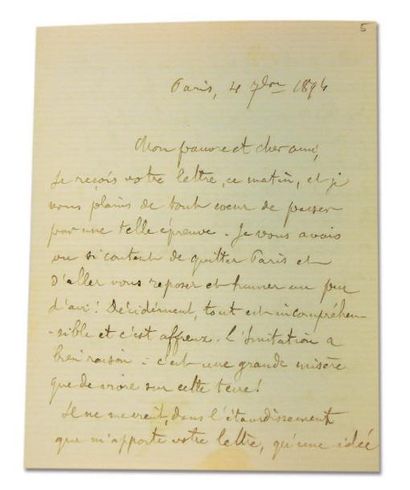 5
Paris, 4 7bre 1894
Mon pauvre et cher ami,
Je reçois votre lettre, ce matin, et je
vous plains de tout cœur de passer
par une telle épreuve. Je vous avais
vu si content de quitter Paris et
d'aller vous reposer et humer un peu
d'air! Décidément, tout est incompréhen-
-sible et c'est affreux. L'Imitation a
bien raison: c'est une grande misère
que de vivre sur cette terre!
Il ne me vient, dans l'étourdissement
que m'apporte votre lettre, qu'une idée